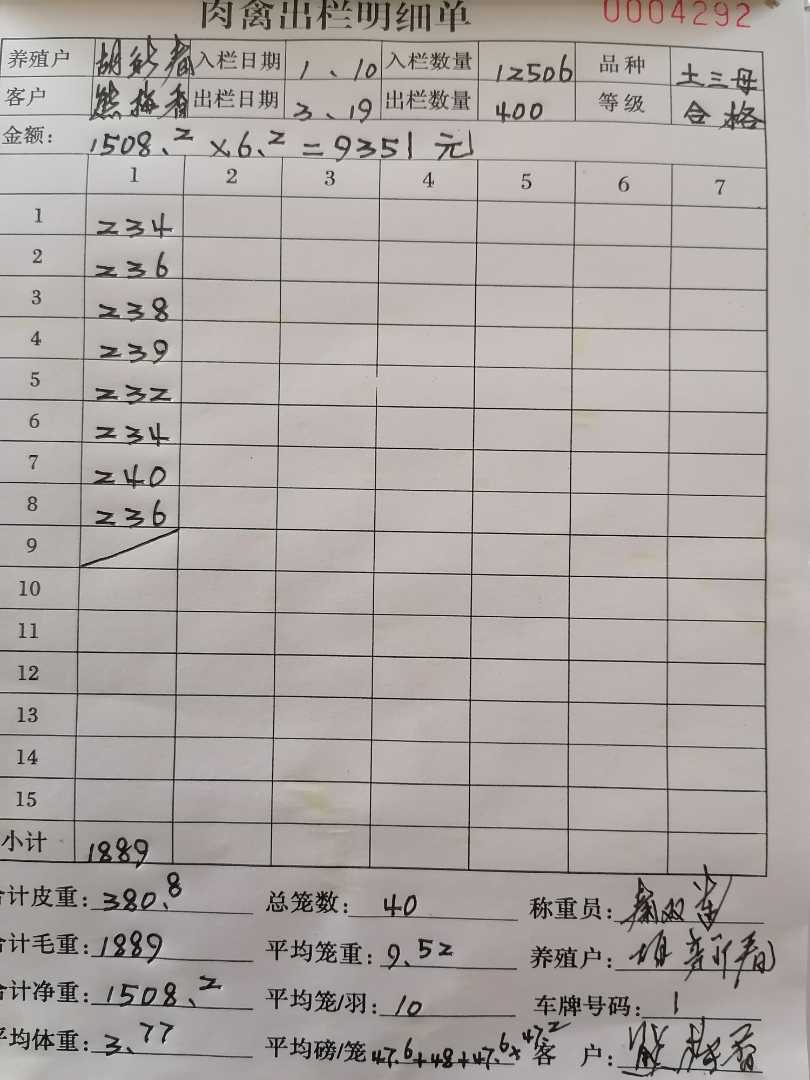 肉禽出栏明细单 0004292
养殖户 胡新春 入栏日期 1、10 入栏数量 12506 品种 土三母
客户 熊梅香 出栏日期 3、19 出栏数量 400 等级 合格
金额: 1508.2 × 6.2 = 9351 元
1 2 3 4 5 6 7
1 234
2 236
3 238
4 239
5 232
6 234
7 240
8 236
9
10
11
12
13
14
15
小计 1889
合计皮重: 380.8 总笼数: 40 称重员:
合计毛重: 1889 平均笼重: 9.52 养殖户: 胡新春
合计净重: 1508.2 平均笼/羽: 10 车牌号码: 1
平均体重: 3.77 平均磅/笼 47.6+48+47.6+47.2 客 户: 熊梅香